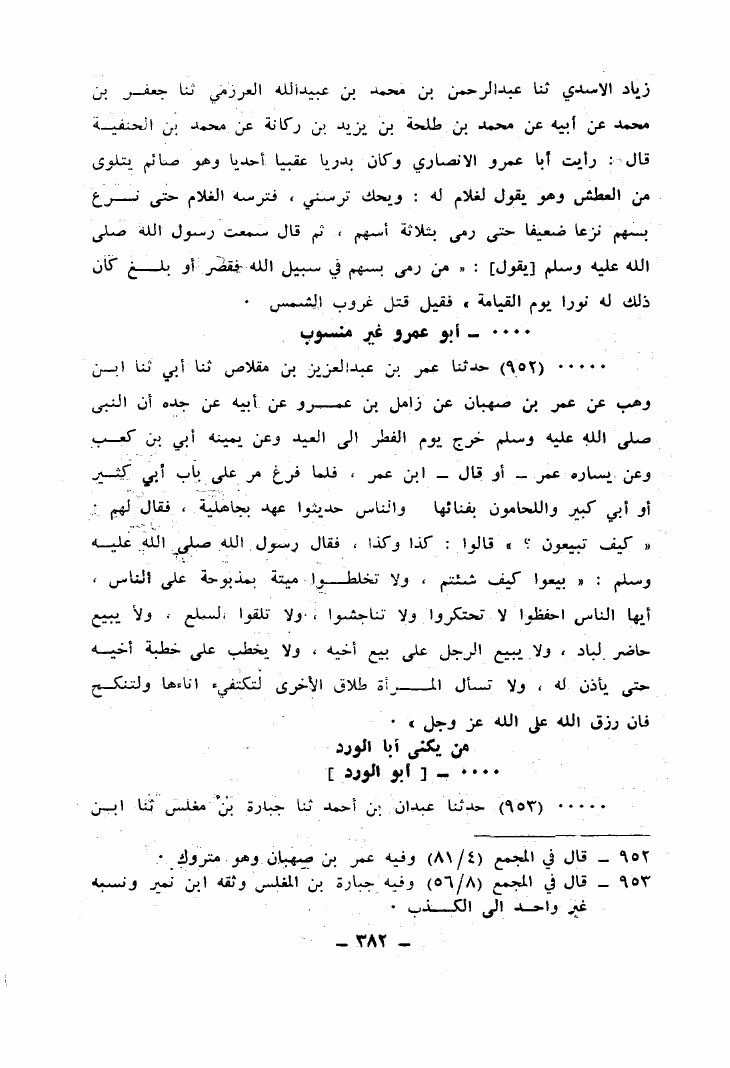 زياد الاسدي ثنا عبدالرحمن بن محمد بن عبيدالله العرزمي ثنا جعفر بن
محمد عن أبيه عن محمد بن طلحة بن يزيد بن ركانة عن محمد بن الحنفية
قال : رأيت أبا عمرو الانصاري وكان بدريا عقبيا أحديا وهو صائم يتلوى
من العطش وهو يقول لغلام له : ويحك ترسني ، فترسه الغلام حتى نزع
بسهم نزعا ضعيفا حتى رمى بثلاثة أسهم ، ثم قال سمعت رسول الله صلى
الله عليه وسلم [يقول] : « من رمى بسهم في سبيل الله فقصر أو بلغ كان
ذلك له نورا يوم القيامة » فقيل قتل غروب الشمس ٠
٠٠٠٠ ــ أبو عمرو غير منسوب
٠٠٠٠٠ (٩٥٢) حدثنا عمر بن عبدالعزيز بن مقلاص ثنا أبي ثنا ابن
وهب عن عمر بن صهبان عن زامل بن عمرو عن أبيه عن جده أن النبى
صلى الله عليه وسلم خرج يوم الفطر الى العيد وعن يمينه أبي بن كعب
وعن يساره عمر ــ أو قال ــ ابن عمر ، فلما فرغ مر على باب أبي كثير
أو أبي كبير واللحامون بفنائها والناس حديثوا عهد بجاهلية ، فقال لهم :
« كيف تبيعون ؟ » قالوا : كذا وكذا ، فقال رسول الله صلى الله عليه
وسلم : « بيعوا كيف شئتم ، ولا تخلطوا ميتة بمذبوحة على الناس ،
أيها الناس احفظوا لا تحتكروا ولا تناجشوا ، ولا تلقوا السلع ، ولا يبيع
حاضر لباد ، ولا يبيع الرجل على بيع أخيه ، ولا يخطب على خطبة أخيه
حتى يأذن له ، ولا تسأل المرأة طلاق الأخرى لتكتفيء اناءها ولتنكح
فان رزق الله على الله عز وجل » ٠
من يكنى أبا الورد
٠٠٠٠ ــ [ أبو الورد ]
٠٠٠٠٠ (٩٥٣) حدثنا عبدان بن أحمد ثنا جبارة بن مغلس ثنا ابن
٩٥٢ ــ قال في المجمع (٨١/٤) وفيه عمر بن صهبان وهو متروك ٠
٩٥٣ ــ قال في المجمع (٥٦/٨) وفيه جبارة بن المغلس وثقه ابن نمير ونسبه
غير واحد الى الكذب ٠
ــ ٣٨٢ ــ